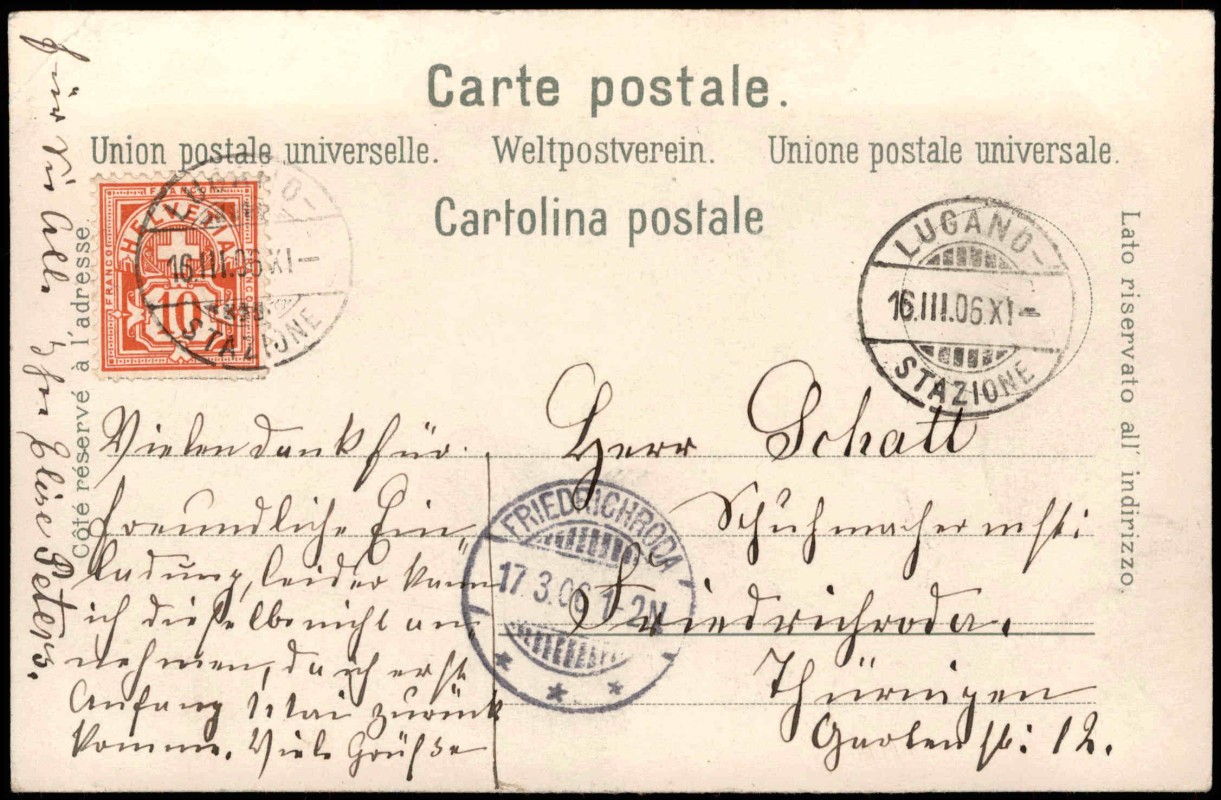 Carte postale.
Union postale universelle. Weltpostverein. Unione postale universale.
Cartolina postale
Côté réservé à l'adresse
Lato riservato all' indirizzo.
FRANCO
HELVETIA
FRANCO
10
LUGANO-
16.III.06.XI-
STAZIONE
LUGANO-
16.III.06.XI-
STAZIONE
FRIEDRICHRODA
17.3.06 1-2N
Herr Schatt
Schuhmachermstr:
Friedrichroda.
Thüringen
Gartenstr: 12.
Vielen dank für
freundliche Ein-
ladung, leider kann
ich dieselbe nicht an-
nehmen, da ich erst
Anfang Mai zurück
komme. Viele Grüße
für Sie alle Ihre Elise Peters.